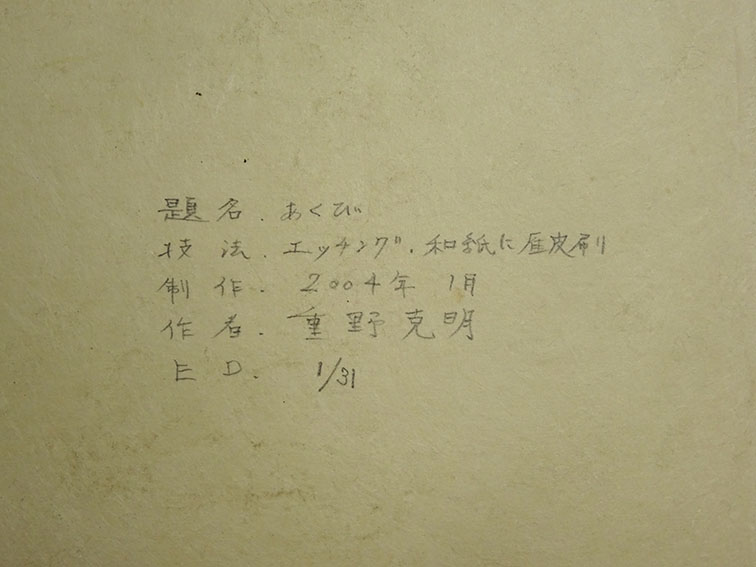 題名. あくび
技法. エッチング. 和紙に雁皮刷り
制作. 2004年 1月
作者. 重野克明
ED. 1/31